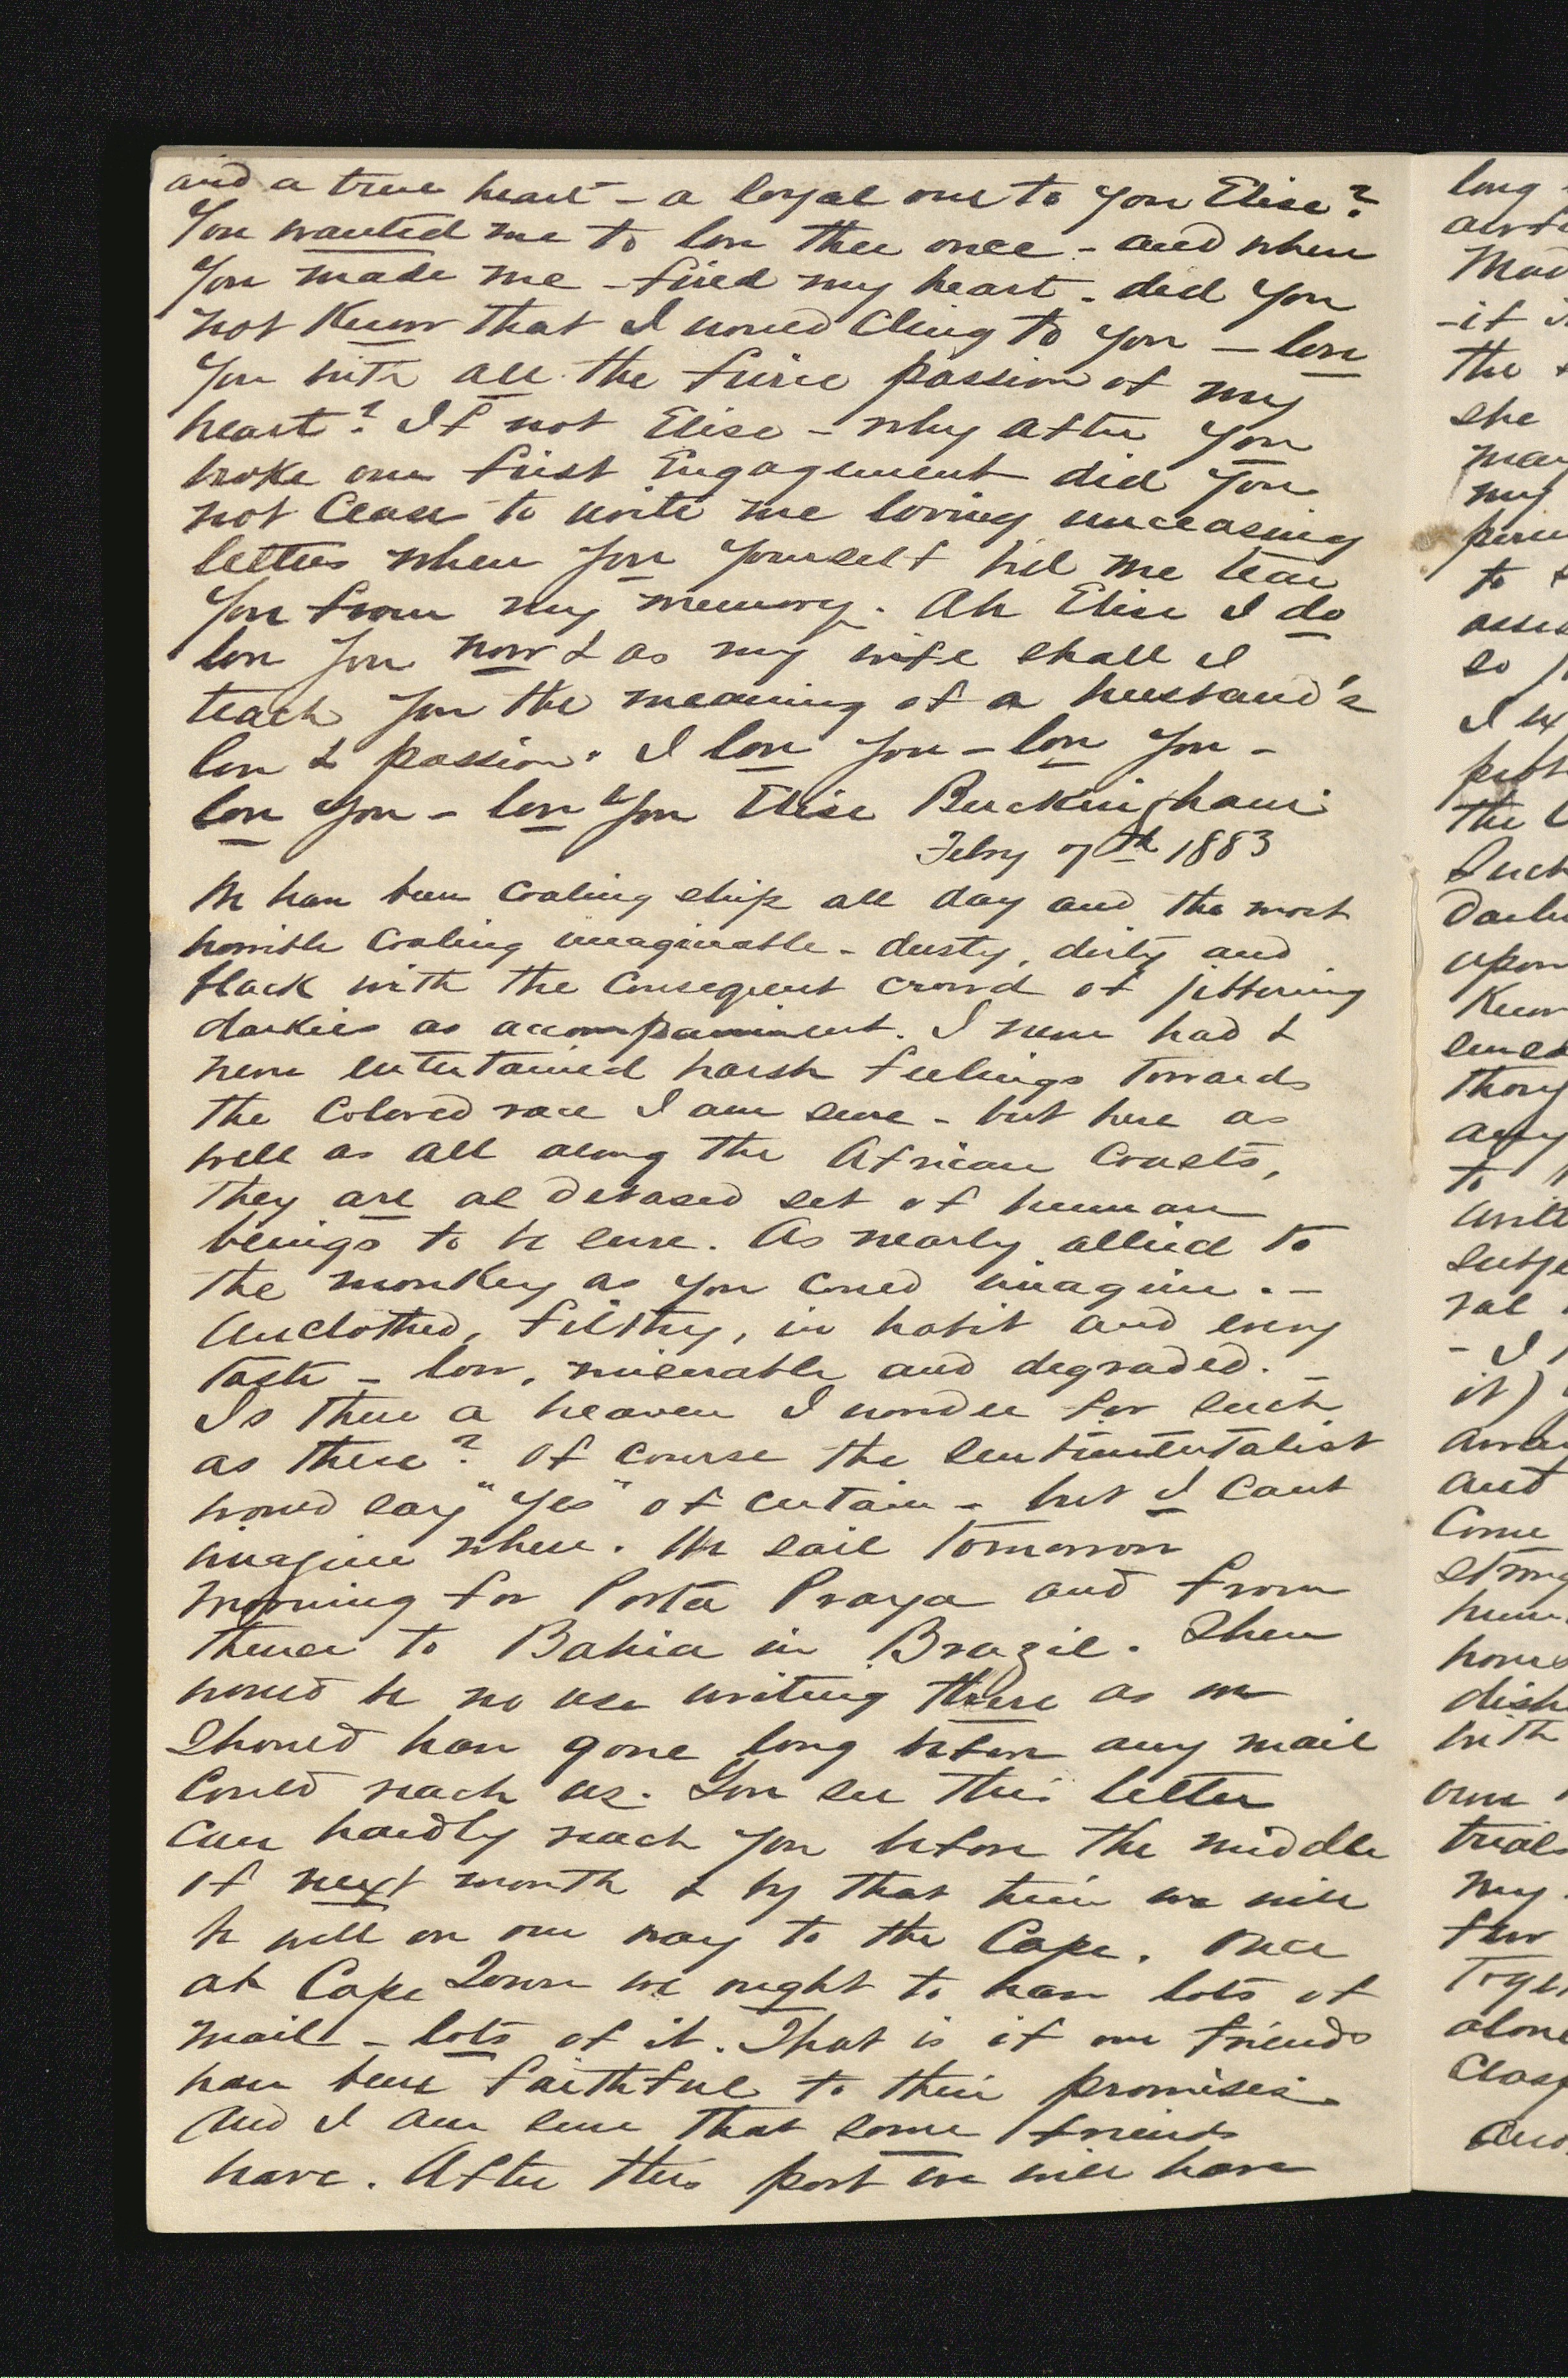 and a true heart - a loyal one to you Elise?
You wanted me to love thee once - and when
you made me - fired my heart - did you
not know that I would cling to you - love
you with all the fierce passion of my
heart? If not Elise - why after you
broke our first Engagement did you
not cease to write me loving unceasing
letters when you yourself bid me tear
you from my memory. Ah Elise I do
love you now & as my wife shall I
teach you the meaning of a husband's
love & passion. I love you - love you -
love you - love you Elise Buckingham
Febry 7th 1883
We have been coaling ship all day and the most
horrible coaling imaginable - dusty, dirty and
black with the consequent crowd of jibbering
darkies as accompaniment. I never had &
never entertained harsh feelings towards
the colored race I am sure - but here as
well as all along the African Coasts,
they are a debased set of human
beings to be sure. As nearly allied to
the monkey as you could imagine. -
Unclothed, filthy, in habit and every
taste - low, miserable and degraded. -
Is there a heaven I wonder for such
as these? Of course the sentimentalist
would say "Yes" of certain - but I cant
imagine where. We sail tomorrow
morning for Porta Praya and from
thence to Bahia in Brazil. There
would be no use writing there as we
should have gone long before any mail
could reach us. You see this letter
can hardly reach you before the middle
of next month & by that time we will
be well on our way to the Cape. Once
at Cape Town we ought to have lots of
mail - lots of it. That is if our friends
have been faithful to their promises.
And I am sure that some friends
have. After this port we will have
long
the
she
my
to
so
the
upon
to
it)
and
Come
with
trials
my
alone